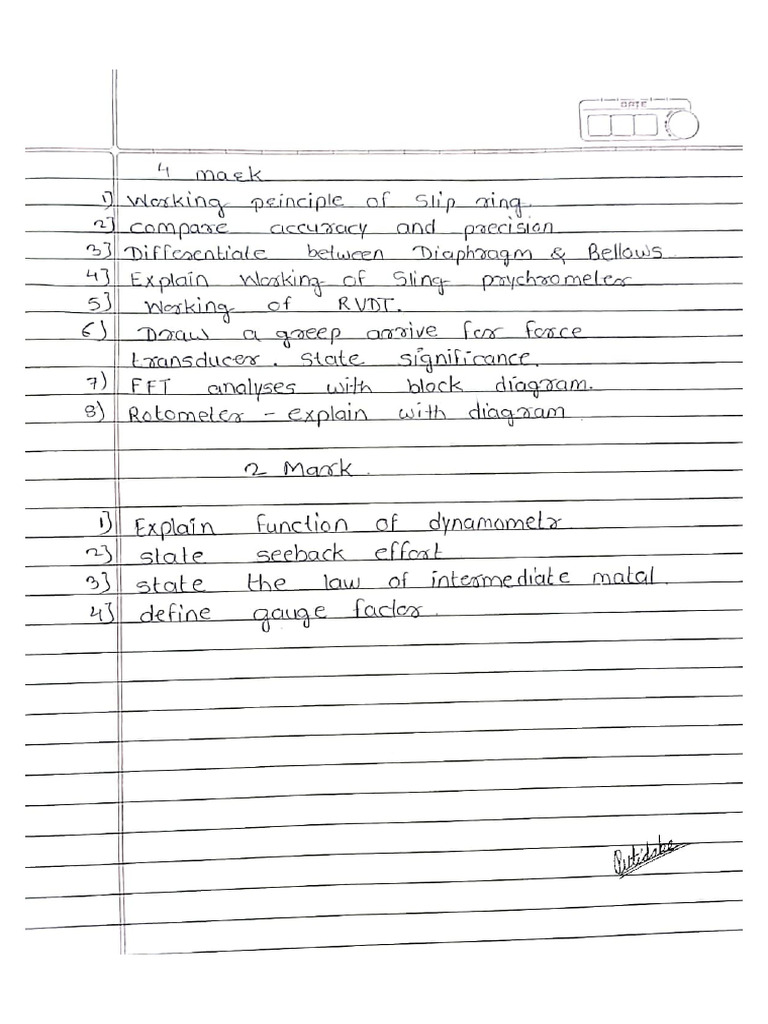 DATE
4 mark
1) Working principle of Slip ring.
2) compare accuracy and precision
3) Differentiate between Diaphragm & Bellows
4) Explain Working of Sling psychrometer
5) Working of RVDT.
6) Draw a greep arrive for force
transducer. state significance.
7) FFT analyses with block diagram.
8) Rotometer - explain with diagram
2 Mark.
1) Explain function of dynamometr
2) state seeback effort
3) state the law of intermediate matal.
4) define gauge factor.